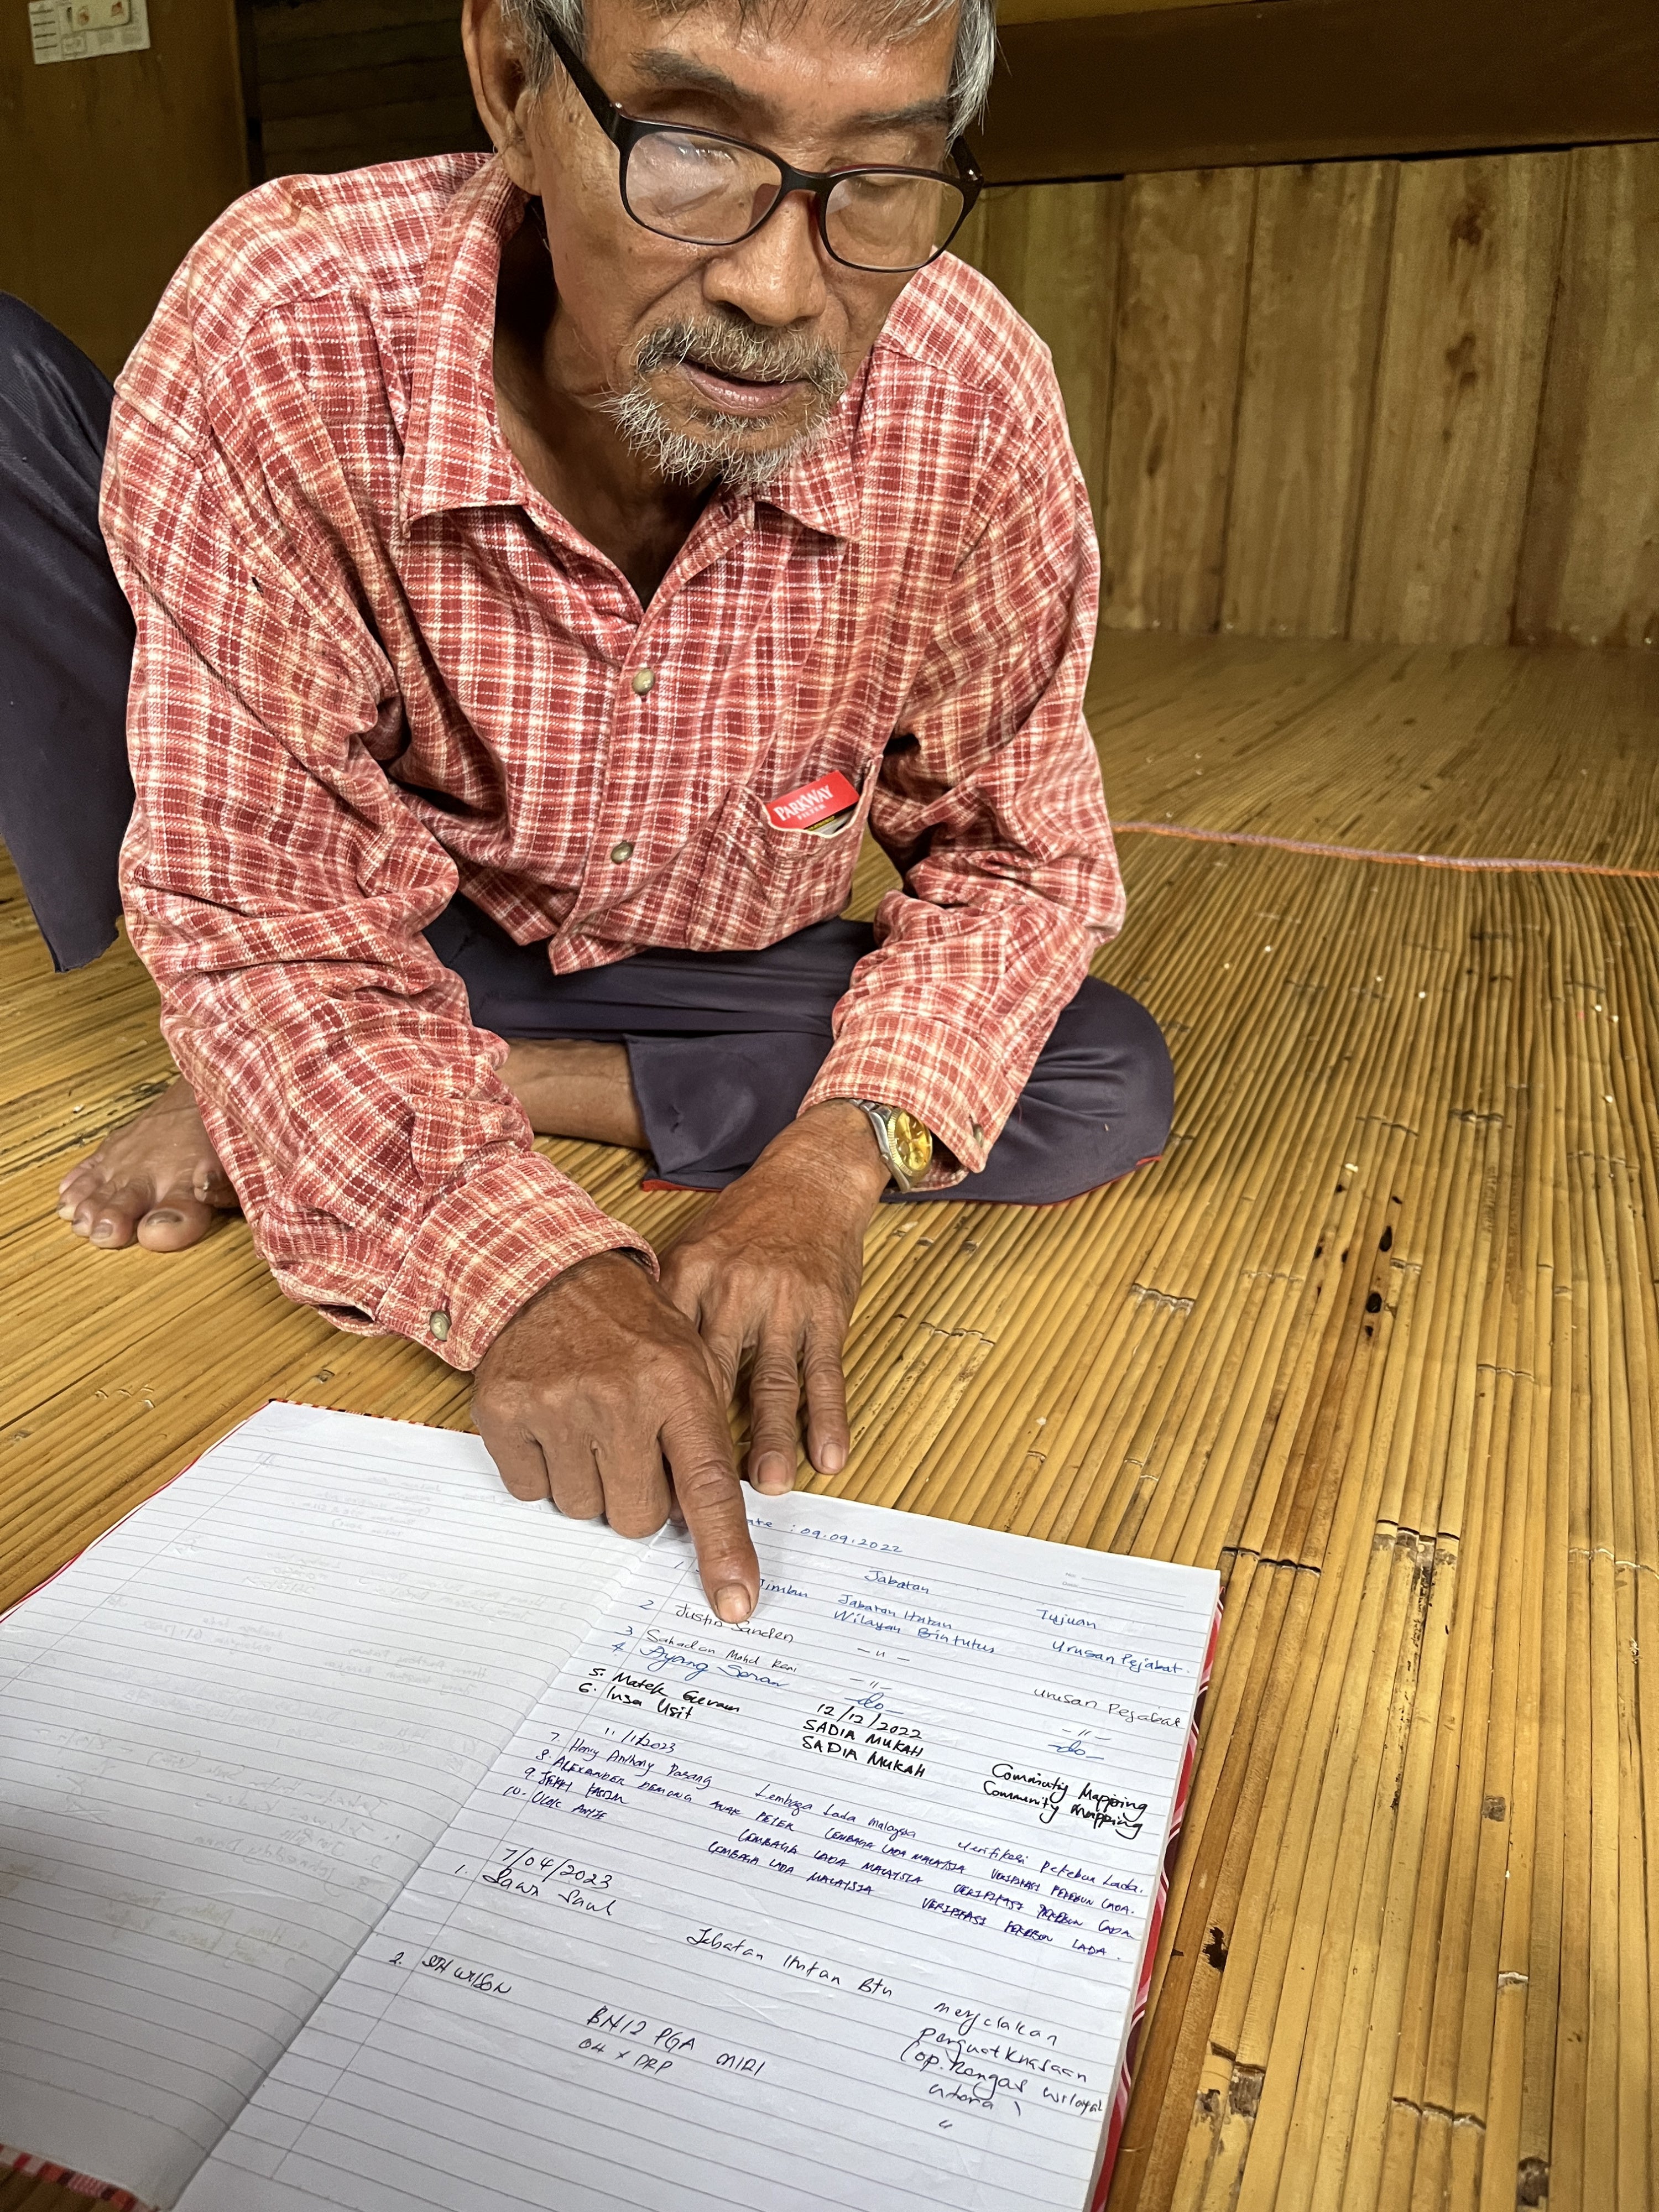 PARKWAY
FILTER
ate : 09.09.2022
Jabatan
Tujuan
1. Jimbun Jabatan Hutan Urusan Pejabat.
Wilayah Bintulu
2 Justin Sanden — " — urusan Pejabat
3 Sahadan Mohd — " — — " —
4. Ayang — do — — do —
12/12/2022
5. Matek SADIA MUKAH Community Mapping
6. Insa Usit SADIA MUKAH Community Mapping
11/1/2023
7. Henry Anthony Pasang Lembaga Lada Malaysia Verifikasi Pekebun Lada.
8. ALEXANDER DEMONG ANAK PETER LEMBAGA LADA MALAYSIA VERIFIKASI PEKEBUN LADA.
9. LEMBAGA LADA MALAYSIA VERIFIKASI PEKEBUN LADA
10. LEMBAGA LADA MALAYSIA VERIFIKASI PEKEBUN LADA.
7/04/2023
1. Jabatan Hutan Btu
Op. wilayah
2. WILSON BN12 PGA MIRI "